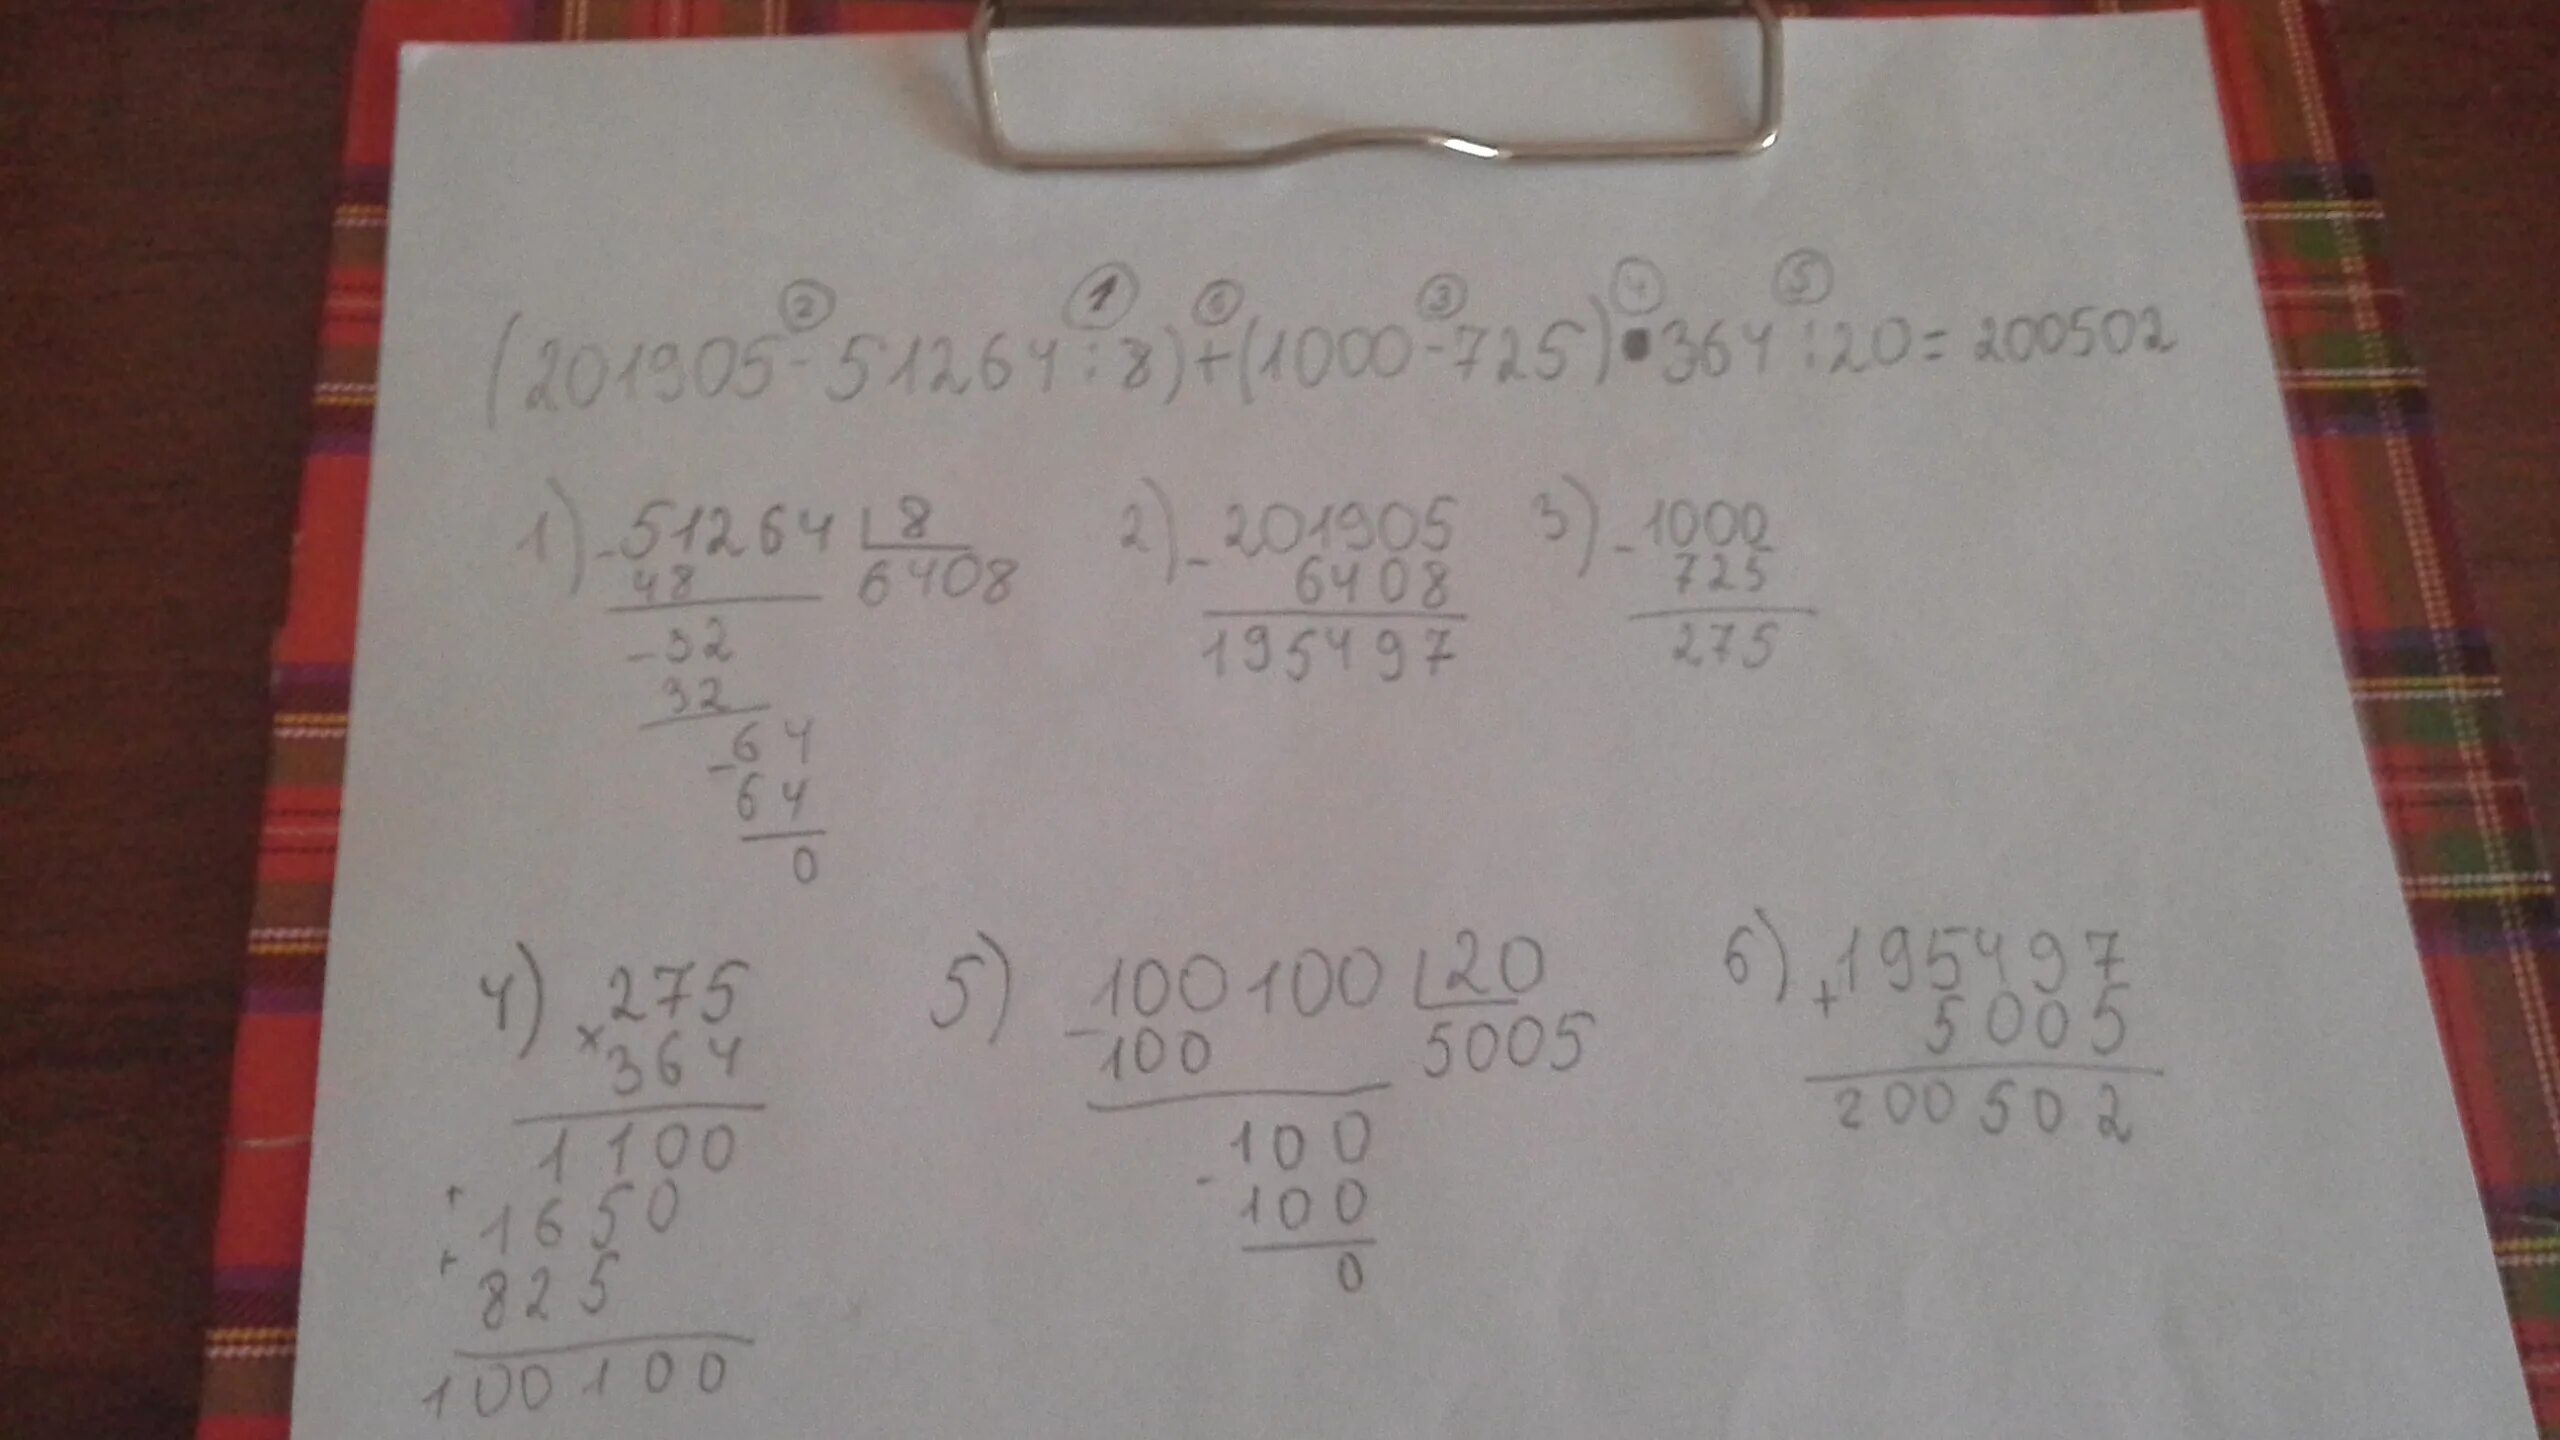 ② ① ⑥ ③ ④ ⑤
(201905-51264:8)+(1000-725)•364:20=200502
1) -51264 8 2) -201905 3) -1000
48 6408 6408 725
-32 195497 275
32
-64
64
0
4) 275 5) 100100 20 6) 195497
×364 -100 5005 +5005
1100 100 200502
+1650 -100
+825 0
100100